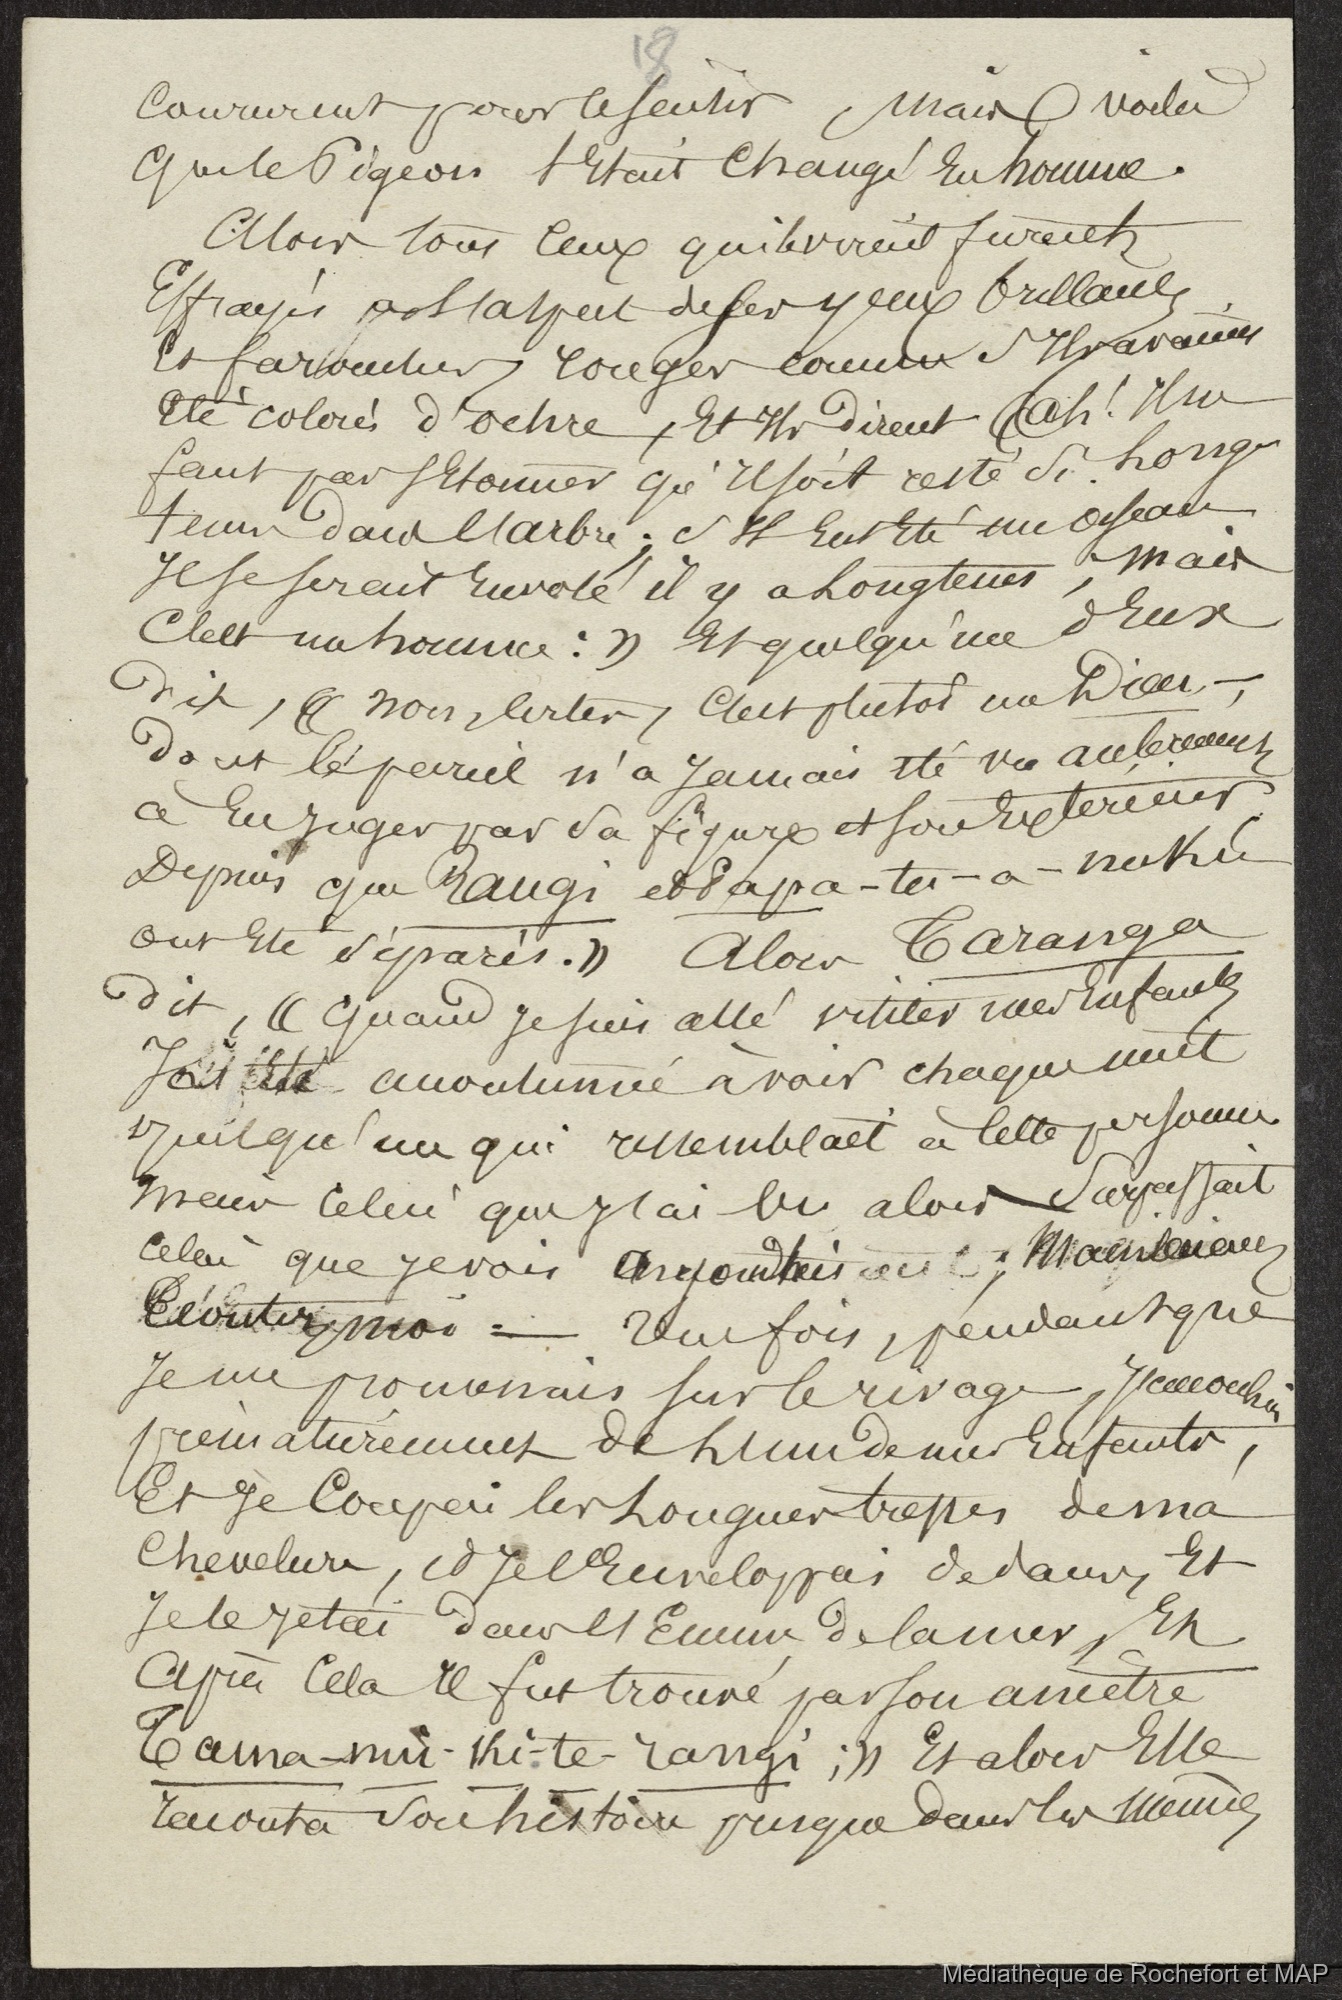 18
Coururent pour le sentir, mais voila
Que le Pigeon s'Etait Changé En homme.
Alors tous Ceux qui le virent furent
Effrayés a l'aspect de ses yeux brillants
Et farouches, rouges comme s'Ils avaient
Eté colorés d'ochre, Et Ils dirent « ah! Il ne
faut pas s'Etonner qu'Il soit resté si Long
tems dans l'arbre; s'Il Eut Eté un oiseau
Il se serait Envolé il y a Longtems; mais
C'est un homme: » Et quelqu'un d'Eux
Dit, « non, certes, C'est plutot un Dieu -,
Dont le pareil n'a Jamais été vu
a En Juger par sa figure et son Extérieur
Depuis que Rangi et Papa-tu-a-nuku
ont Eté séparés. » Alors Taranga
Dit, « Quand Je suis allé visiter mes Enfants
J'ai Eté accoutumé à voir chaque nuit
quelqu'un qui ressemblait a Cette personne
mais Celui que J'ai Vu alors Surpassait
celui que Je vois aujourd'hui; Maintenant
Ecoutez moi = Une fois, pendant que
Je me promenais sur le rivage, J'accouchai
prématurément de L'un de mes Enfants,
Et Je Coupai les Longues tresses de ma
Chevelure, et Je l'Enveloppai dedans, Et
Je le Jetai Dans l'Ecume de la mer, Et
Après Cela Il fut trouvé par son ancêtre
Tama-nui-ki-te-rangi; » Et alors Elle
raconta Son histoire presque dans les Mêmes
Médiathèque de Rochefort et MAP